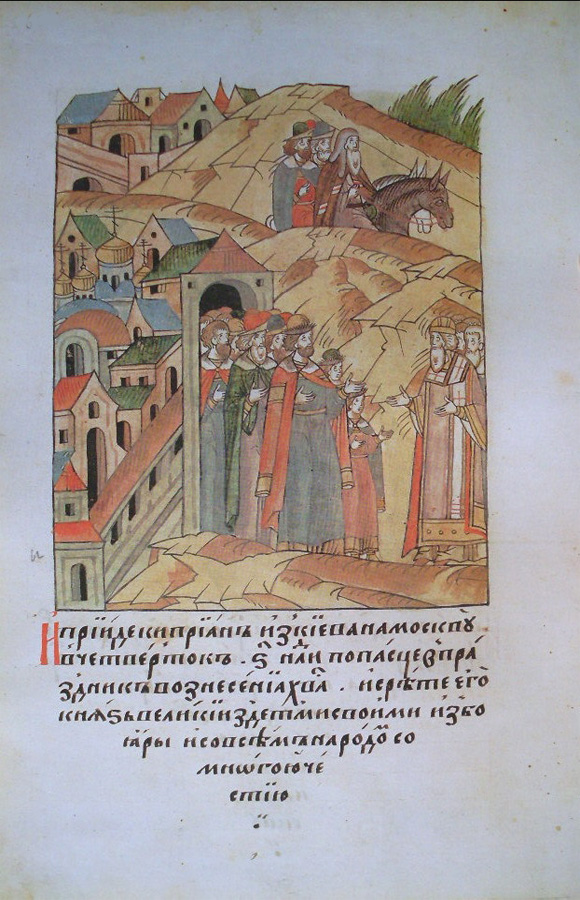 И прїиде кипрїанъ изкїева на москвꙋ
в четвертокъ . ѕ҃ нд҃ли по пасце в пра
здникъ вознесенїа хв҃а . и срѣте его
кнѧѕь великїи з детми своими и з бо
ꙗры и со всѣмъ народоⷨ со
мнѡгою че
стїю